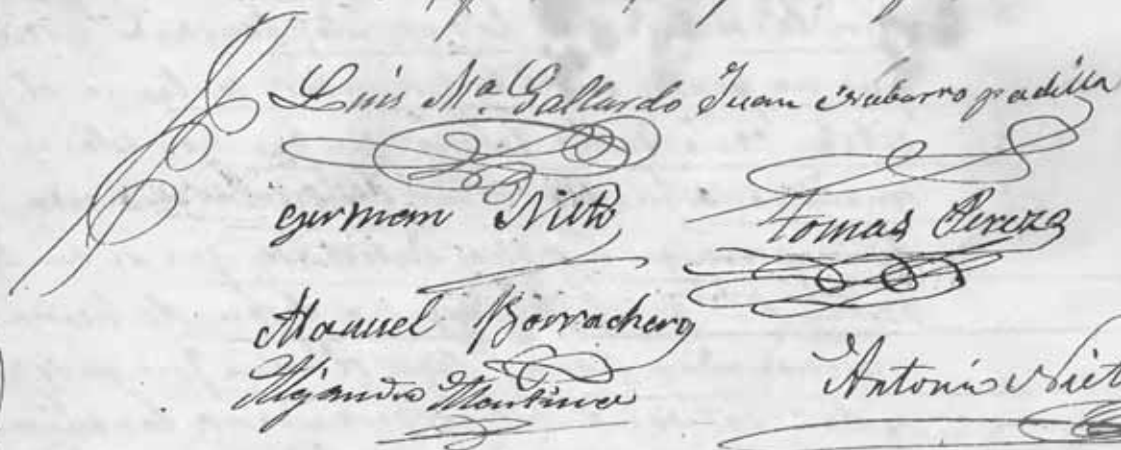 Luis Mª Gallardo Juan Nabarro padilla
german Nieto Tomas Perez
Manuel Borrachero
Alejandro Martinez Antonio Nieto